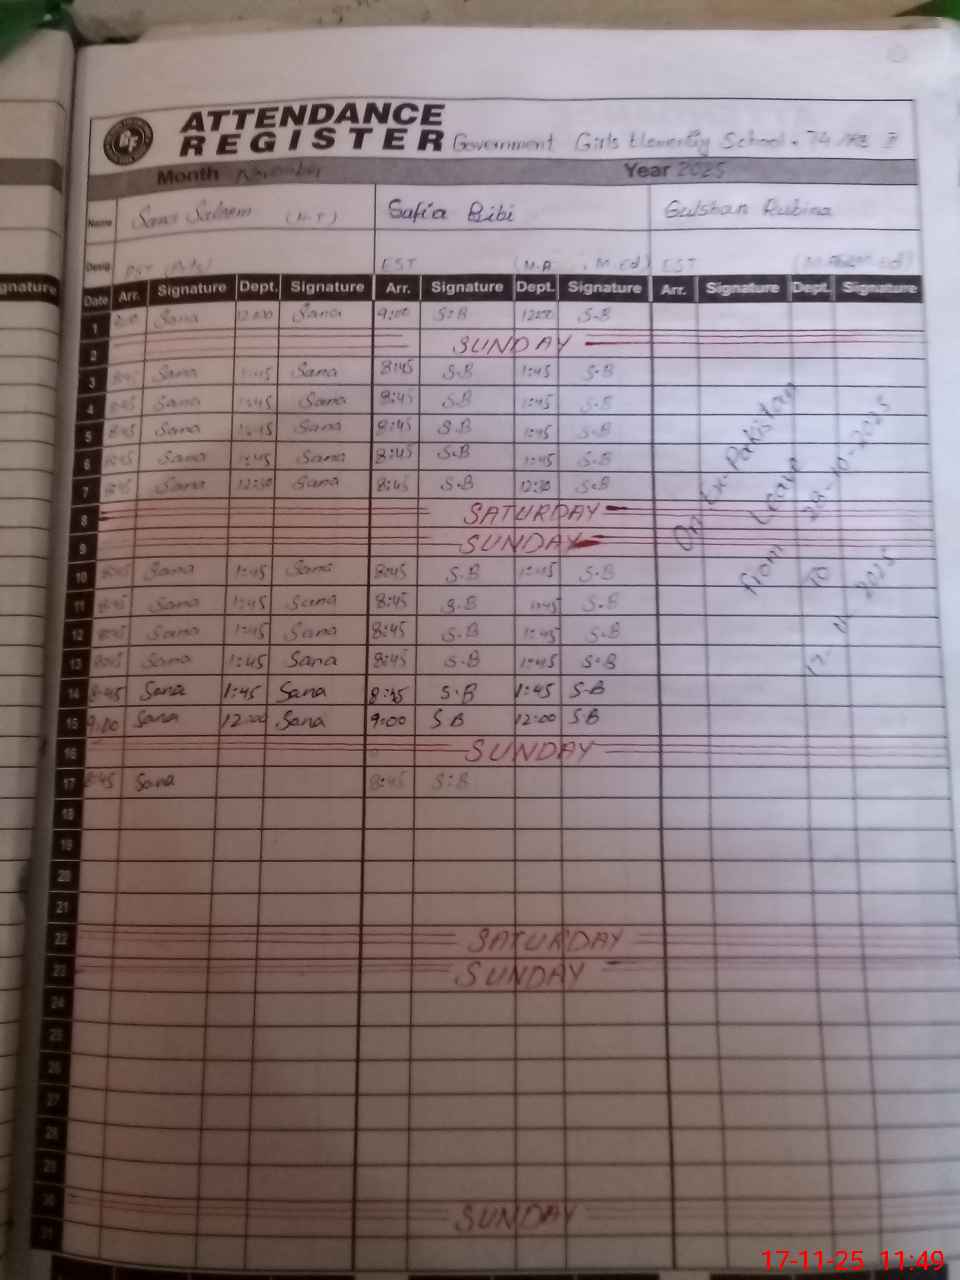 ATTENDANCE
REGISTER Government Girls Elementry School . 74
Month November Year 2025
Name Sana Saleem (N.T) Safia Bibi Gulshan Rubina
Desig EST (M.A , M.Ed) EST
gnature Date Arr. Signature Dept. Signature Arr. Signature Dept. Signature Arr. Signature Dept. Signature
1 Sana 12:00 Sana 9:00 S.B 12:00 S.B
2 SUNDAY
3 8:45 Sana 1:45 Sana 8:45 S.B 1:45 S.B
4 8:45 Sana 1:45 Sana 8:45 S.B 1:45 S.B
5 8:45 Sana 1:45 Sana 8:45 S.B 1:45 S.B
6 8:45 Sana 1:45 Sana 8:45 S.B 1:45 S.B
7 8:45 Sana 12:30 Sana 8:45 S.B 12:30 S.B
8 SATURDAY
9 SUNDAY
On Ex-Pakistan
Leave
From 28-10-2025
To
2025
10 8:45 Sana 1:45 Sana 8:45 S.B 1:45 S.B
11 8:45 Sana 1:45 Sana 8:45 S.B 1:45 S.B
12 8:45 Sana 1:45 Sana 8:45 S.B 1:45 S.B
13 8:45 Sana 1:45 Sana 8:45 S.B 1:45 S.B
14 8:45 Sana 1:45 Sana 8:45 S.B 1:45 S.B
15 9:00 Sana 12:00 Sana 9:00 S B 12:00 S.B
16 SUNDAY
17 8:45 Sana 8:45 S.B
18
19
20
21
22 SATURDAY
23 SUNDAY
24
25
26
27
28
29
30 SUNDAY
31
17-11-25 11:49